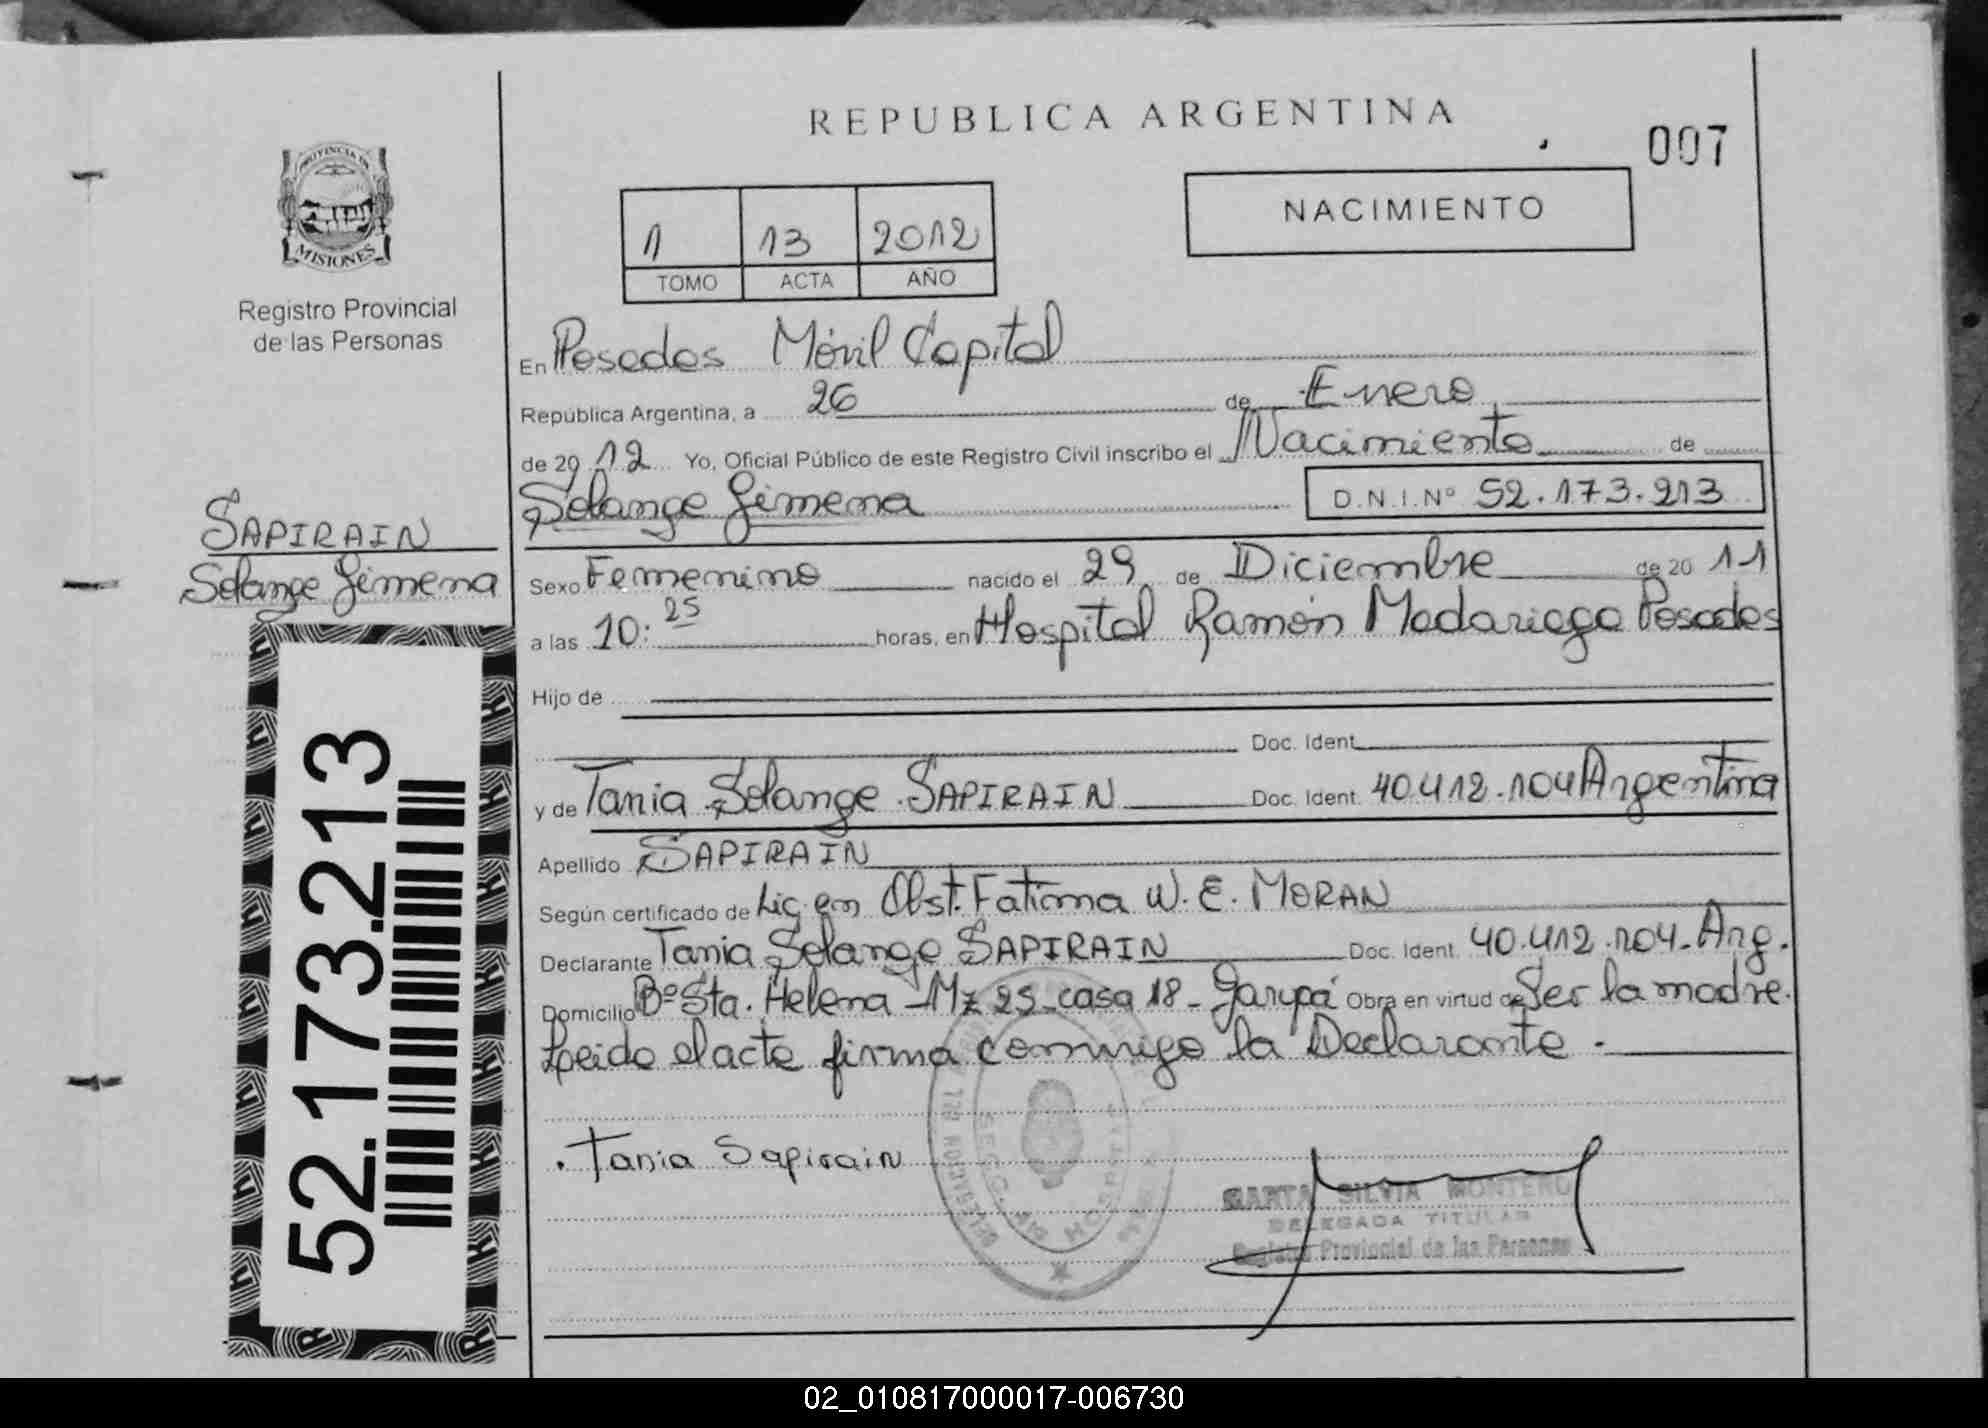 REPUBLICA ARGENTINA
007
PROVINCIA DE
MISIONES
Registro Provincial
de las Personas
1 13 2012
TOMO ACTA AÑO
NACIMIENTO
En Posadas Móvil Capital
República Argentina, a 26 de Enero
de 2012 Yo, Oficial Público de este Registro Civil inscribo el Nacimiento de
Solange Jimena D.N.I.Nº 52.173.213
SAPIRAIN
Solange Jimena
Sexo Femenino nacido el 29 de Diciembre de 2011
a las 10:25 horas, en Hospital Ramón Madariaga Posadas
Hijo de
Doc. Ident.
y de Tania Solange SAPIRAIN Doc. Ident. 40.412.104 Argentina
Apellido SAPIRAIN
Según certificado de Lic. en Obst. Fatima W. E. MORAN
Declarante Tania Solange SAPIRAIN Doc. Ident. 40.412.104. Arg.
Domicilio Bº Sta. Helena - Mz 25 - casa 18 - Garupá Obra en virtud de Ser la madre.
Leido el acta firma conmigo la Declarante.
52.173.213
Tania Sapirain
MARTA SILVIA MONTERO
DELEGADA TITULAR
Registro Provincial de las Personas
02_010817000017-006730